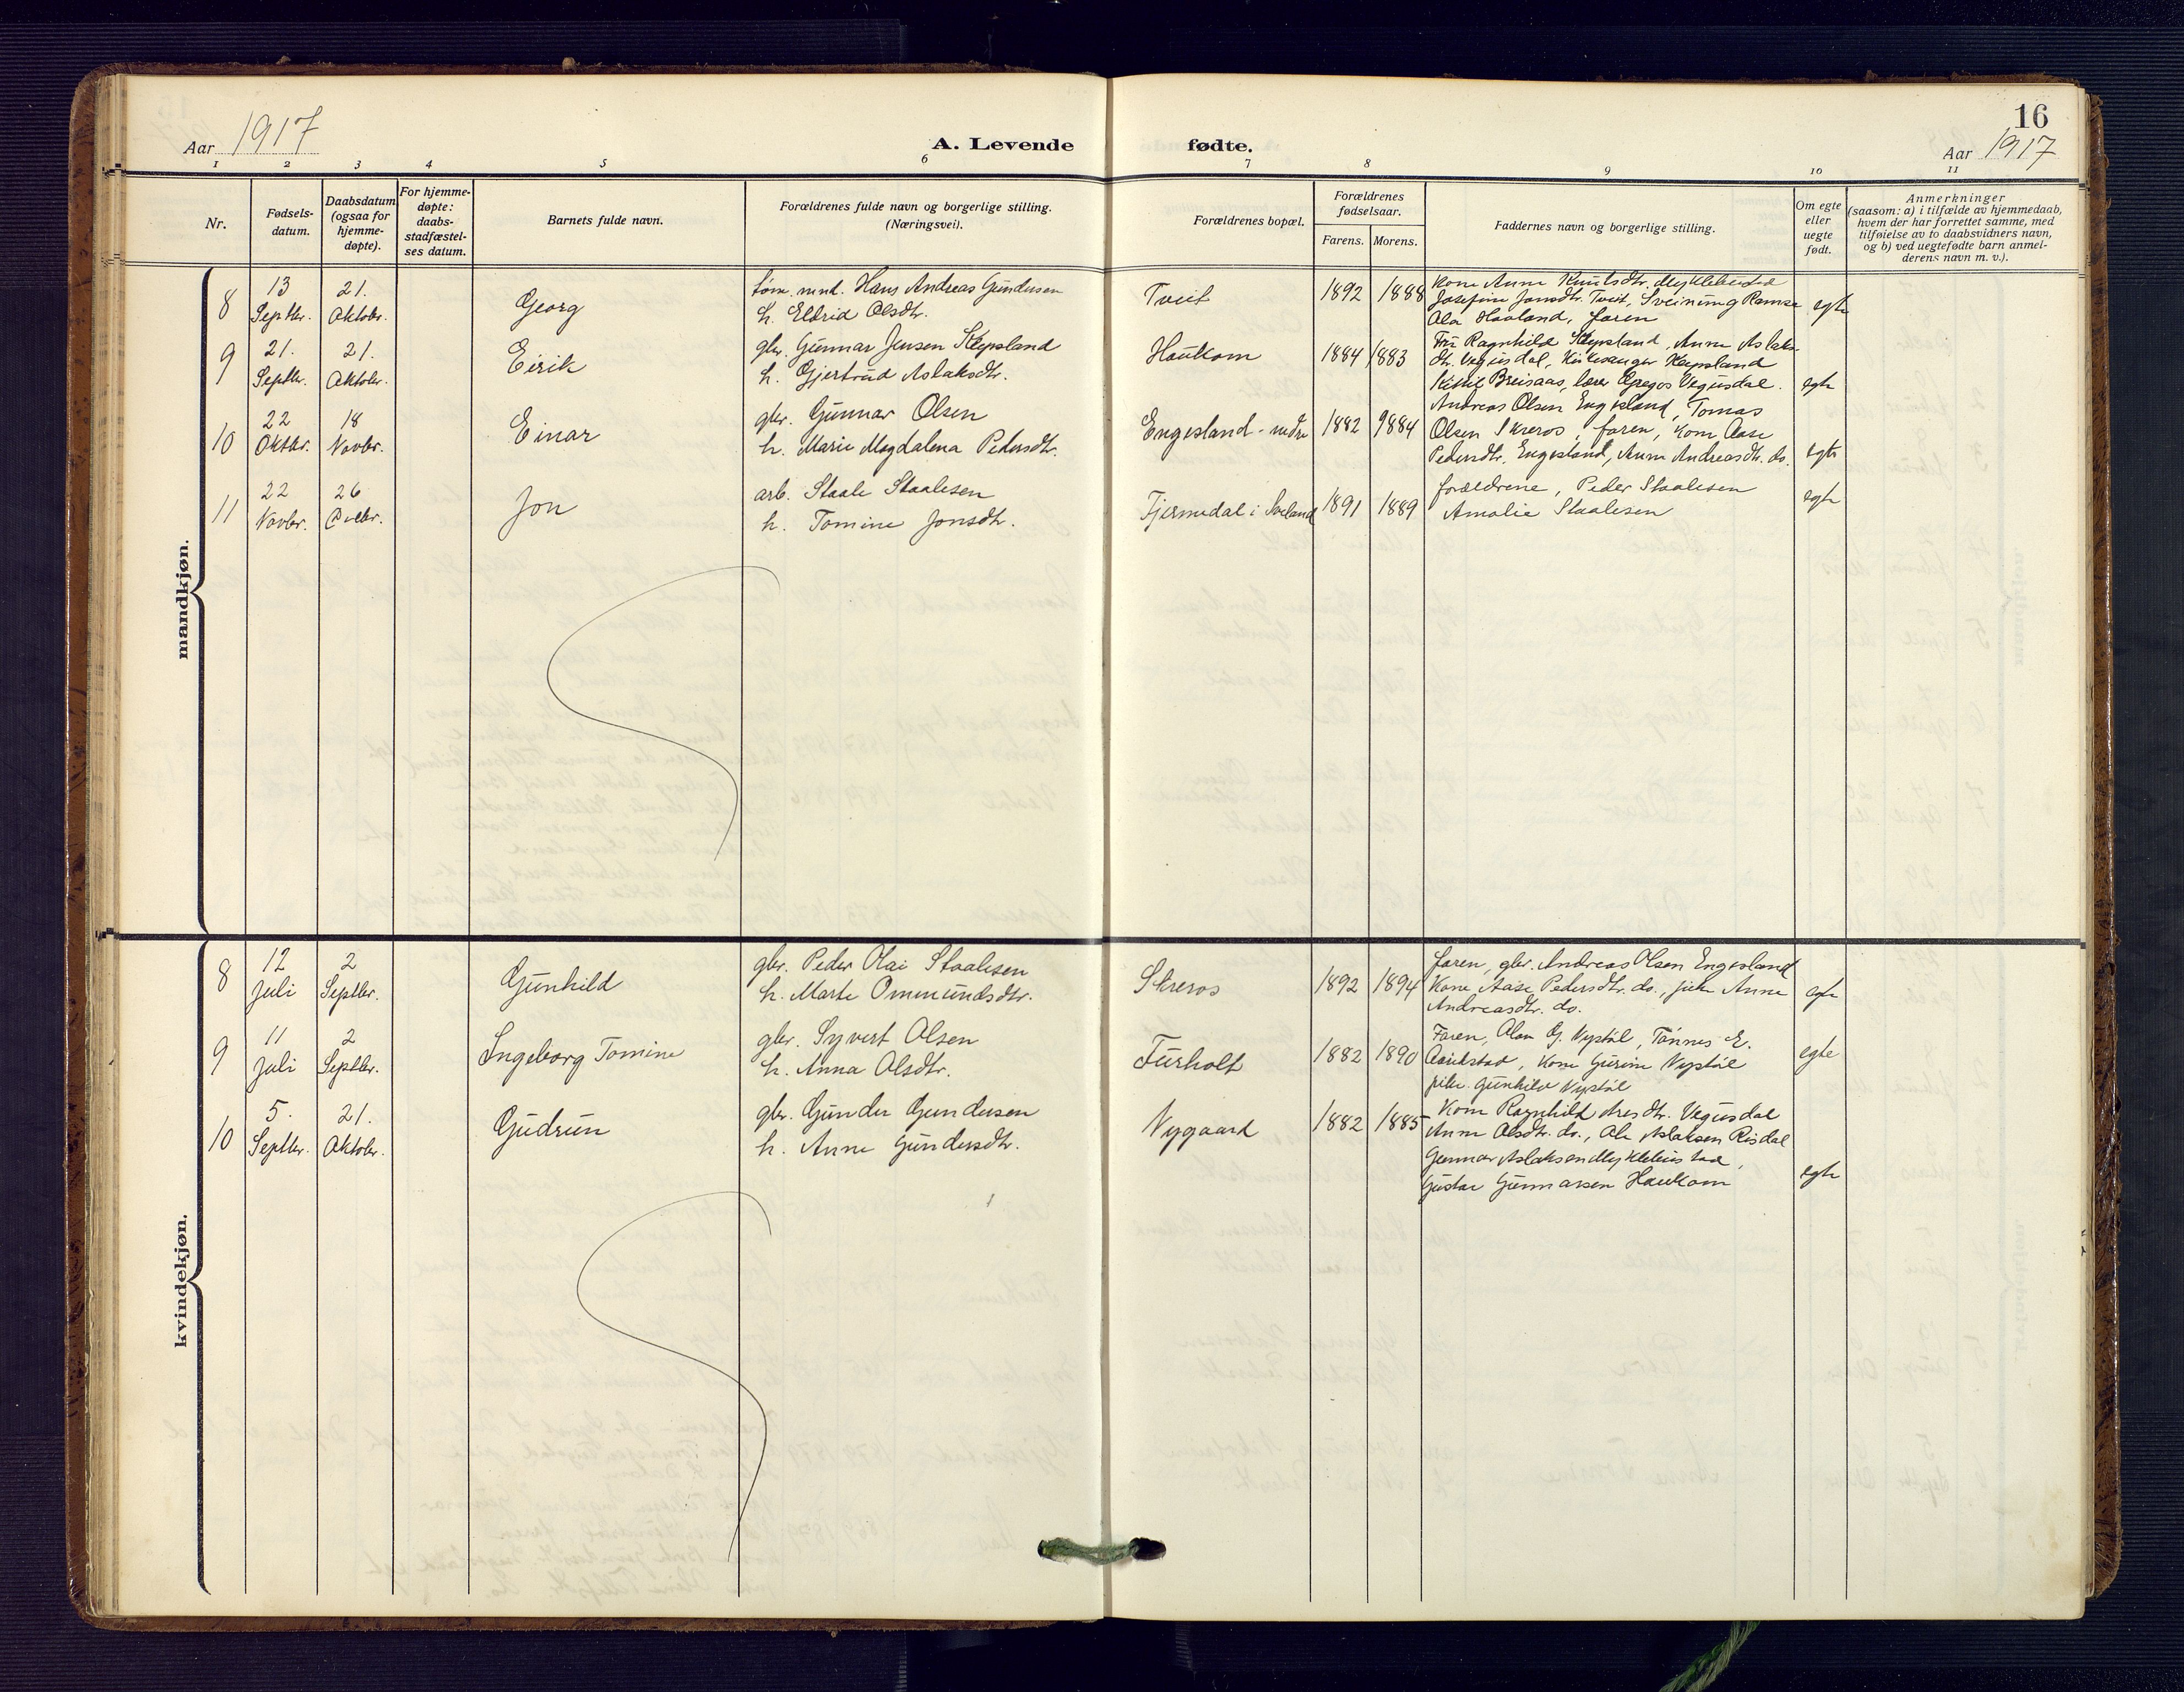 16
Aar 1917
A. Levende
fødte.
Aar 1917
1 2 3 4 5 6 7 8 9 10 11
Nr.
Fødsels-
datum.
Daabsdatum
(ogsaa for
hjemme-
døpte).
For hjemme-
døpte:
daabs-
stadfæstel-
ses datum.
Barnets fulde navn.
Forældrenes fulde navn og borgerlige stilling.
(Næringsvei).
Forældrenes bopæl.
Forældrenes
fødselsaar.
Farens. Morens.
Faddernes navn og borgerlige stilling.
Om egte
eller
uegte
født.
Anmerkninger
(saasom: a) i tilfælde av hjemmedaab,
hvem der har forrettet samme, med
tilføielse av to daabsvidners navn,
og b) ved uegtefødte barn anmel-
derens navn m. v.).
mandkjøn.
8
13
Septbr.
21.
Oktobr.
Georg
tøm. mnd. Hans Andreas Gundersen
h. Eldrid Olsdtr.
Tveit
1892 1888
Kone Anne Knutsdtr. Myklebustad
Josefine Jonsdtr. Tveit, Sveinung Ramse
Ola Haaland, faren
egte
9
21.
Septbr.
21.
Oktobr.
Eirik
gbr. Gunnar Jensen Kepsland
h. Gjertrud Aslaksdtr.
Haukom
1884 1883
Fru Ragnhild Kepsland, Anne Aslaks-
dtr. Vegusdal, Kirkesanger Kepsland
Kittil Breisaas, lærer Gregos Vegusdal.
egte
10
22
Oktbr.
18
Novbr.
Einar
gbr. Gunnar Olsen
h. Marie Magdalena Pedersdtr.
Engesland - nedre
1882 9884
Andreas Olsen Engesland, Tomas
Olsen Skreros, faren, kone Aase
Pedersdtr. Engesland, Anne Andreasdtr. do.
egte
11
22
Novbr.
26
Dcebr.
Jon
arb. Staale Staalesen
h. Tomine Jonsdtr.
Tjermedal i Sveland
1891 1889
forældrene, Peder Staalesen
Amalie Staalesen
egte
kvindekjøn.
8
12
Juli
2
Septbr.
Gunhild
gbr. Peder Olai Staalesen
h. Marte Ommundsdtr.
Skreros
1892 1894
faren, gbr. Andreas Olsen Engesland
Kone Aase Pedersdtr. do., pike Anne
Andreasdtr. do.
egte
9
11
Juli
2
Septbr.
Ingeborg Tomine
gbr. Syvert Olsen
h. Anna Olsdtr.
Furholt
1882 1890
Faren, Olav G. Nystøl, Tønnes E.
Aarikstad, Kone Gurine Nystøl
pike. Gunhild Nystøl
egte
10
5.
Septbr.
21.
Oktobr.
Gudrun
gbr. Gunder Gundersen
h. Anne Gundersdtr.
Nygaard
1882 1885
Kone Ragnhild Aresdtr. Vegusdal
Anne Olsdtr. do., Ole Aslaksen Risdal
Gunnar Aslaksen Myklebustad,
Gustav Gunnarsen Haukom
egte